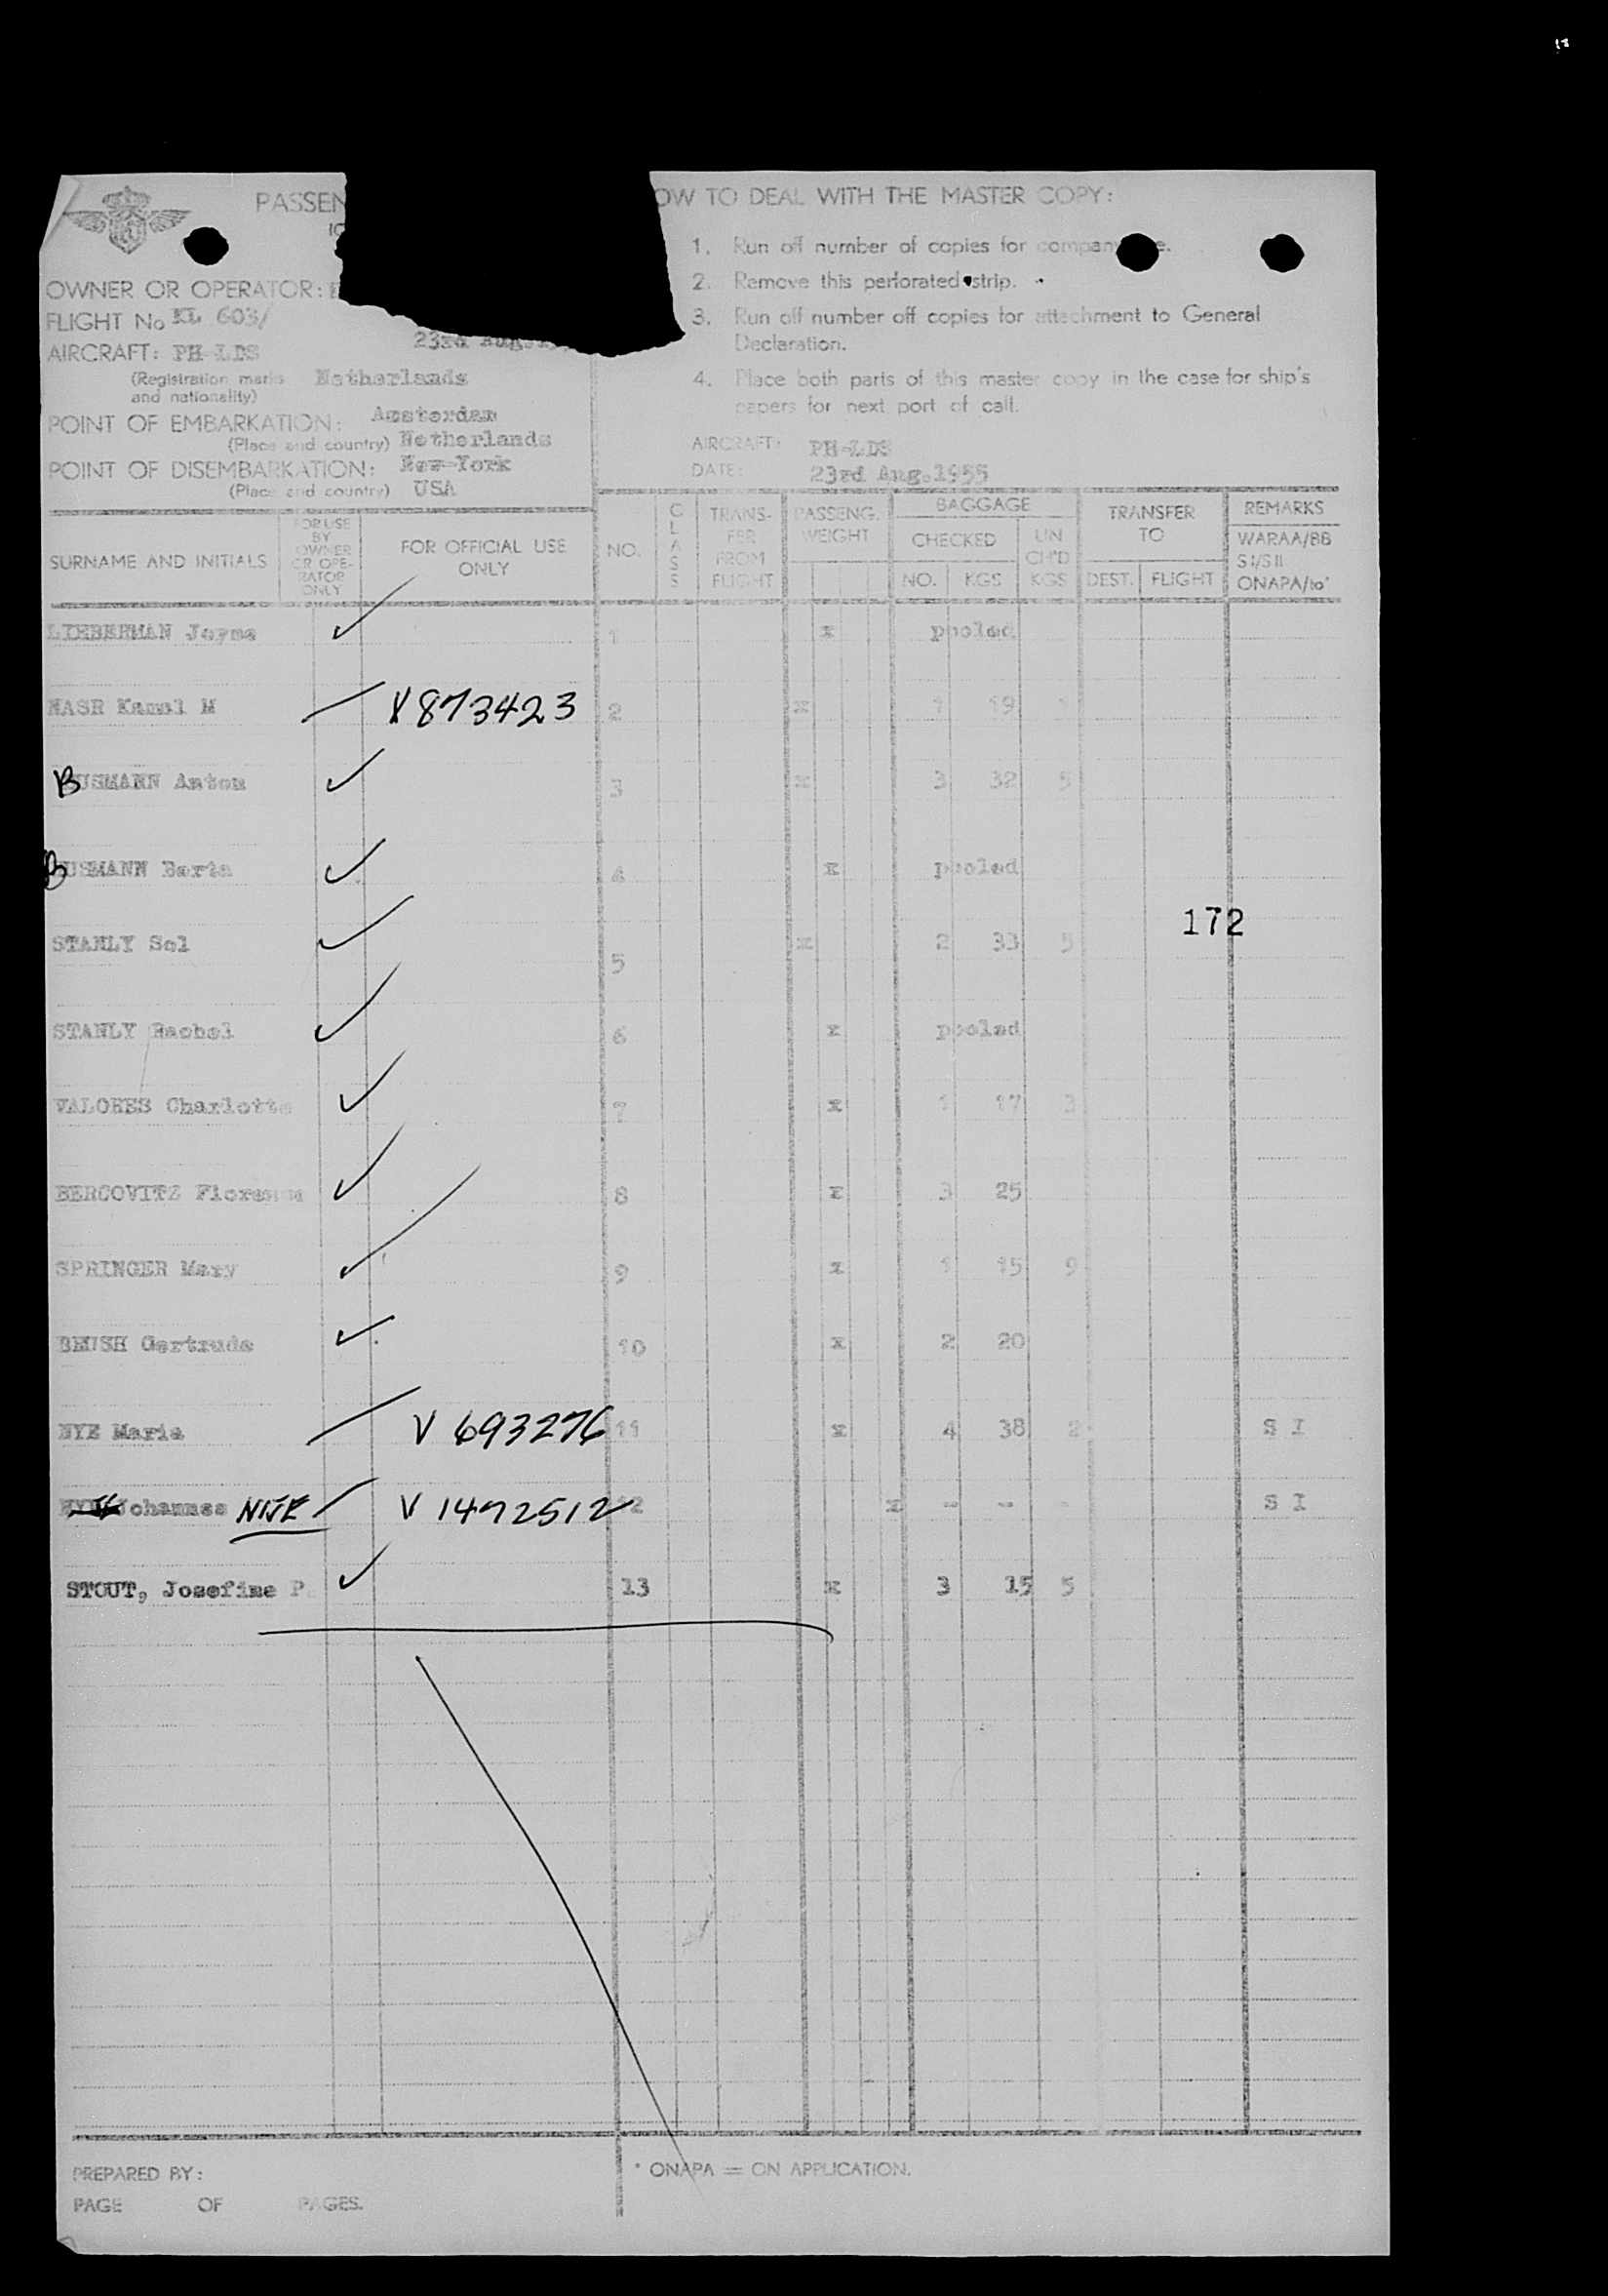 PASSEN
OWNER OR OPERATOR:
FLIGHT No KL 603/
23rd Aug.
AIRCRAFT: PH-LDS
(Registration marks Netherlands
and nationality)
POINT OF EMBARKATION: Amsterdam
(Place and country) Netherlands
POINT OF DISEMBARKATION: New-York
(Place and country) USA
OW TO DEAL WITH THE MASTER COPY:
1. Run off number of copies for company
2. Remove this perforated strip.
3. Run off number off copies for attachment to General
Declaration.
4. Place both parts of this master copy in the case for ship's
papers for next port of call.
AIRCRAFT: PH-LDS
DATE: 23rd Aug.1955
SURNAME AND INITIALS
FOR USE
BY
OWNER
OR OPE-
RATOR
ONLY
FOR OFFICIAL USE
ONLY
NO.
CLASS
TRANS-
FER
FROM
FLIGHT
PASSENG.
WEIGHT
BAGGAGE
CHECKED
NO. KGS
UN
CH'D
KGS
TRANSFER
TO
DEST. FLIGHT
REMARKS
WARAA/BB
SI/SII
ONAPA/to*
LIEBERMAN Jayme 1 x pooled
NASR Kamal M V873423 2 x 1 19 1
BUSMANN Anton 3 x 3 32 5
BUSMANN Berta 4 x pooled
STANLY Sol 5 x 2 33 5
172
STANLY Rachel 6 x pooled
VALORES Charlotte 7 x 1 17 3
BERCOVITZ Florence 8 x 3 25
SPRINGER Mary 9 x 1 15 9
Gertrude 10 x 2 20
NYE Maria V 693276 11 x 4 38 2 S I
Johannes NIJE V 1472512 12 x - - - S I
STOUT, Josefine P. 13 x 3 15 5
PREPARED BY:
PAGE OF PAGES.
* ONAPA = ON APPLICATION.